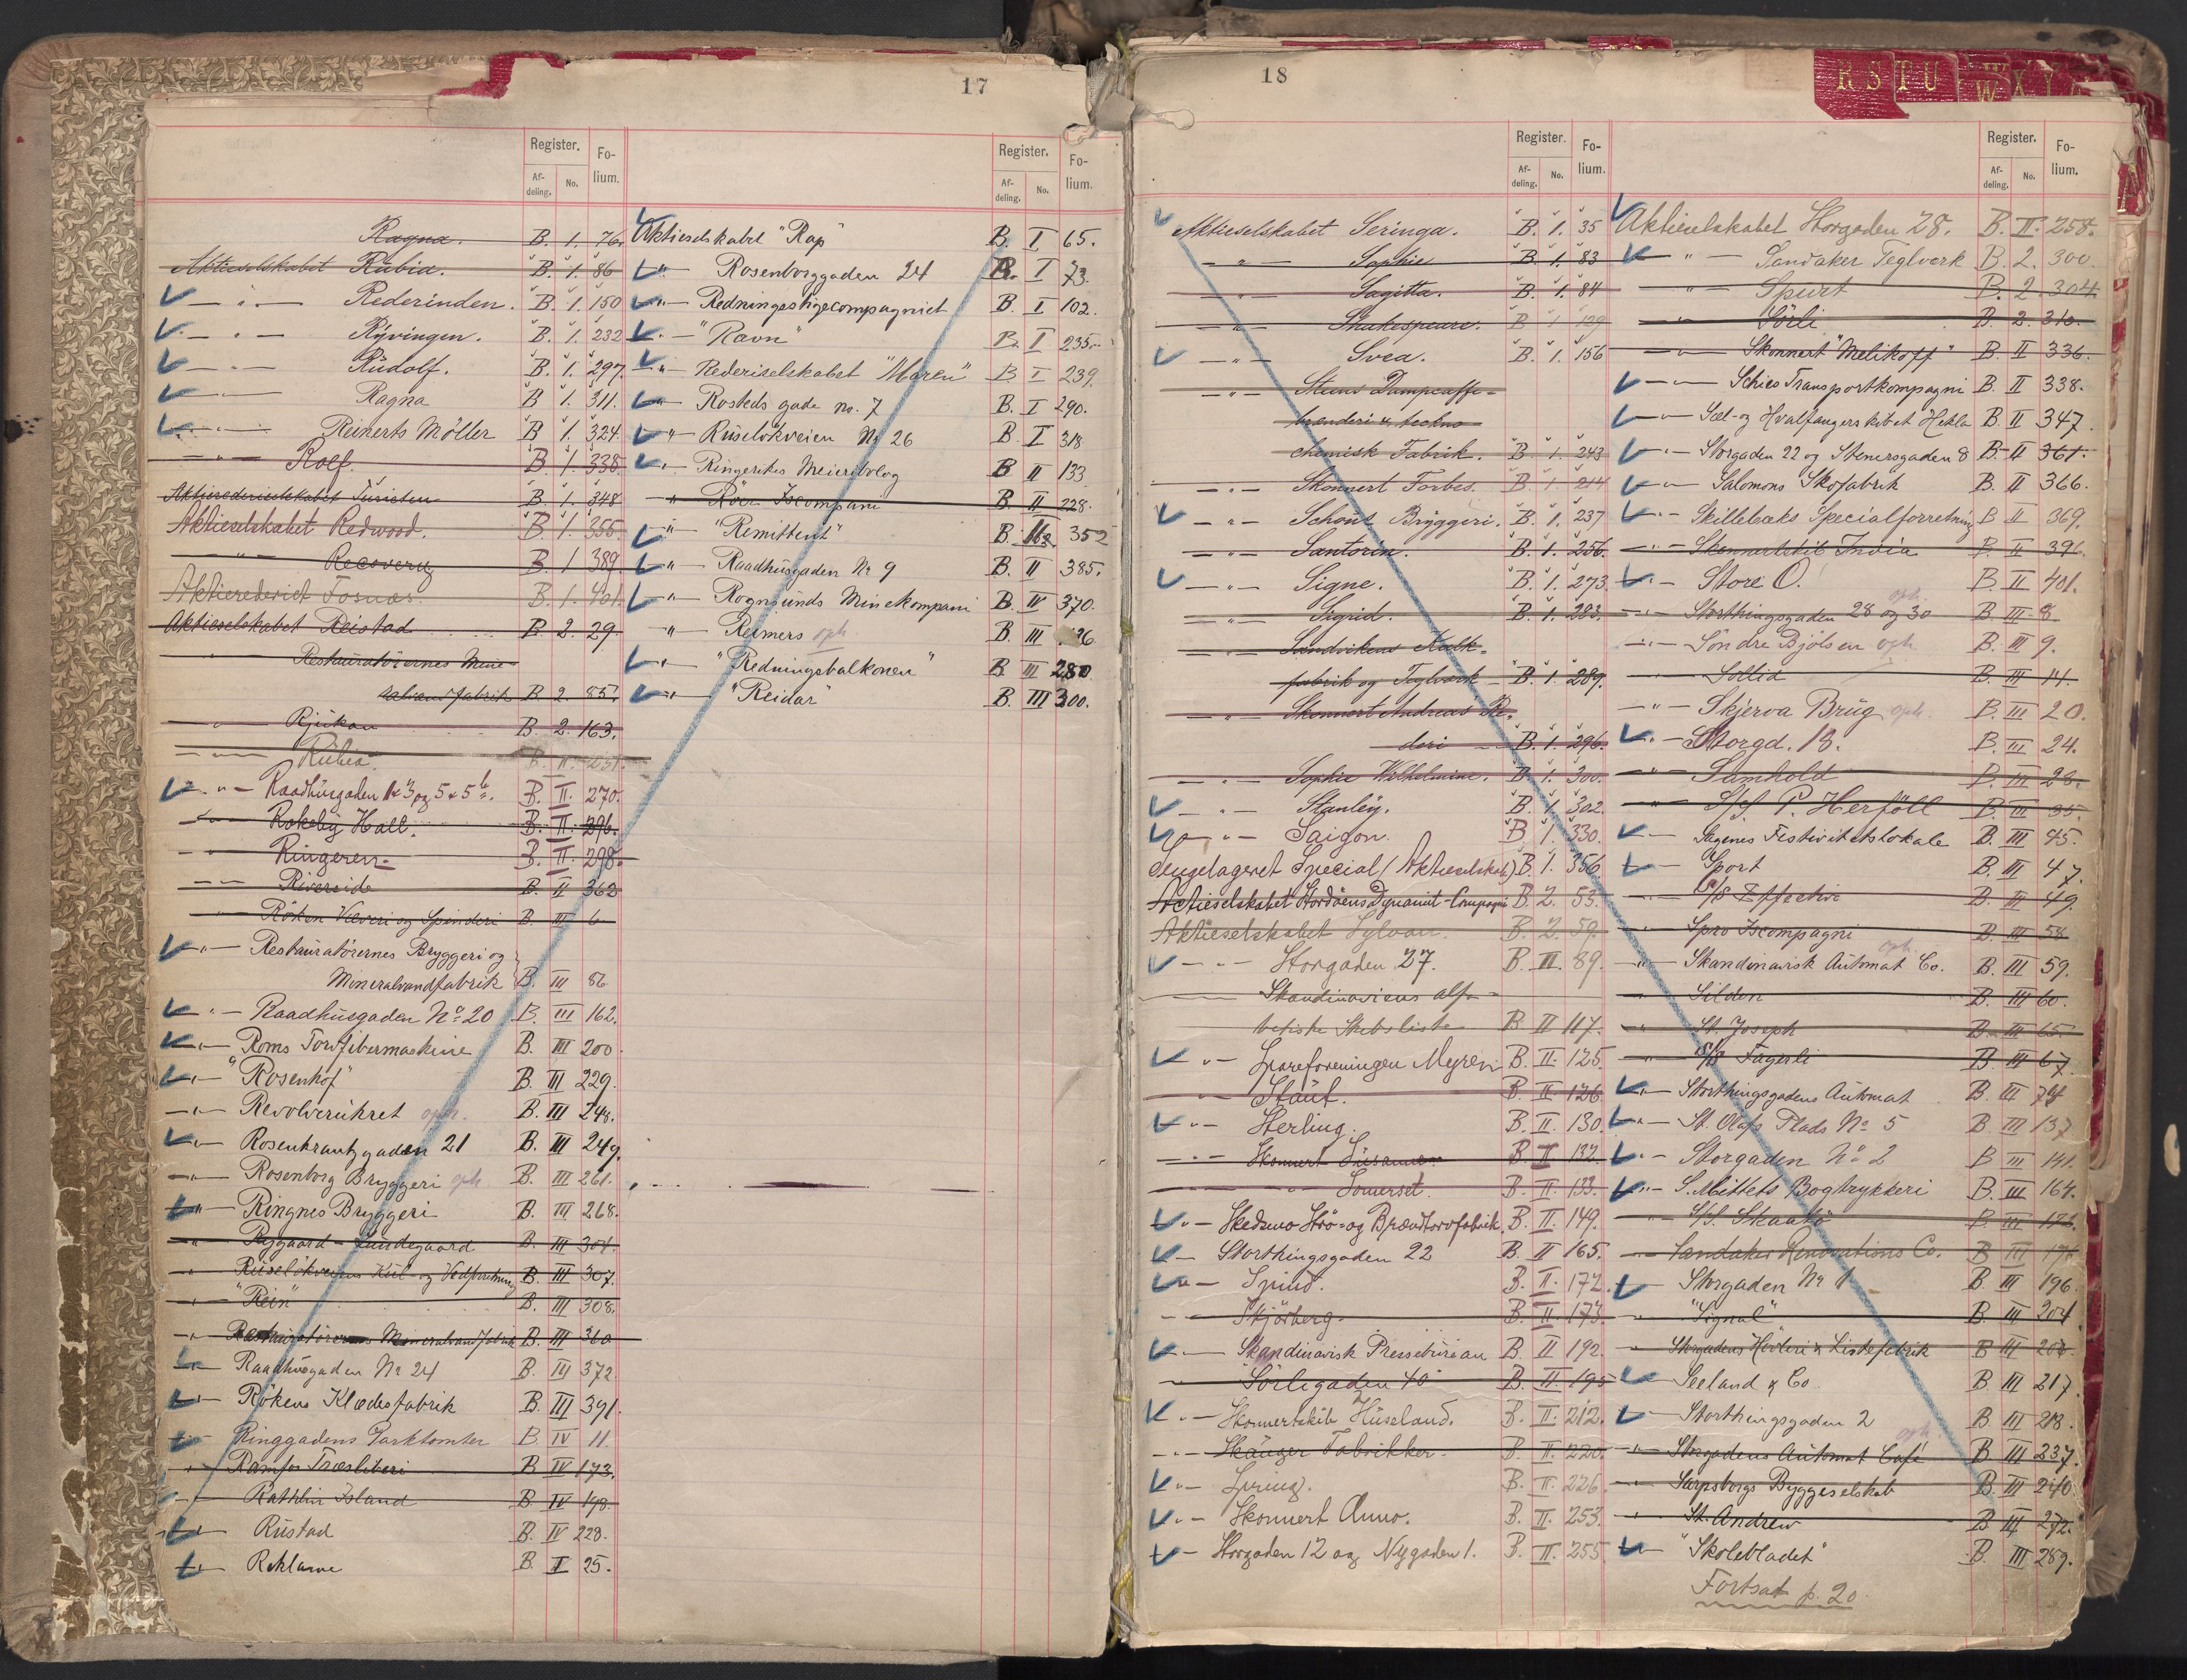 17
Register. Fo-
Af- No. lium.
deling.
Ragna. B. 1. 76.
Aktieselskabet Rubia. B. 1. 86
— " — Rederinden. B. 1. 150
— " — Ryvingen. B. 1. 232
— " — Rudolf. B. 1. 297.
— " — Ragna B. 1. 311.
— " — Reinerts Möller B. 1. 324.
— " — Rolf. B. 1. 338.
Aktierederiselskabet Turisten B. 1. 348
Aktieselskabet Redwood. B. 1. 355.
— " — Recovery B. 1 389
Aktierederiet Fosnæs. B. 1. 401.
Aktieselskabet Reistad B. 2. 29.
" — Restauratörernes Mine-
ralvandfabrik B. 2. 85
— " — Rjukan B. 2. 163.
— " — Rubia. B. II.
— " — Raadhusgaden 1 & 3 og 5 & 5 b. B. II. 270.
— " — Rokeby Hall. B. II. 296.
— " — Ringeren B. II. 298.
— " — Riverside B. II 362
— " — Röken Væveri og Spinderi B. III 6
— " — Restauratörernes Bryggeri og
Mineralvandfabrik B. III 86
— " — Raadhusgaden No 20 B. III 162.
— " — Roms Torvfibermaskine B. III 200
— " — "Rosenhof" B. III 229.
— " — Revolverükret oph. B. III 248.
— " — Rosenkrantzgaden 21 B. III 249.
— " — Rosenborg Bryggeri oph B. III 261.
— " — Ringnes Bryggeri B. III 268.
— " — Rygaard - Lundegaard B. III 304.
— " — Ruselökveiens Kul- og Vedforretning B. III 307.
— " — "Rein" B. III 308.
— " — Restauratörernes Mineralvandfabrik B. III 360
— " — Raadhusgaden No 24 B. III 372
— " — Rökens Klædesfabrik B. III 391.
— " — Ringgadens Parktomter B. IV 11.
— " — Ramfos Træsliberi B. IV 173.
— " — Rathlin Island B. IV 198.
— " — Rustad B. IV 228.
— " — Reklame B. I 25.
Register. Fo-
Af- No. lium.
deling.
Aktieselskabet "Rap" B. I 65.
— " — Rosenborggaden 24 B. I 73.
— " — Redningsstigecompagniet B. I 102.
— " — "Ravn" B. I 235.
— " — Rederiselskabet "Maren" B. I 239.
— " — Rosteds gade no. 7 B. I 290.
— " — Ruselökveien No 26 B. I 318
— " — Ringerikes Meieribolag B II 133.
— " — Röer Iscompani B. II 228.
— " — "Remittent" B. 352
— " — Raadhusgaden No 9 B. II 385.
— " — Rognsunds Minekompani B. IV 370.
— " — Reimers oph. B. III 26
— " — "Redningsbalkonen" B III 280
— " — "Reidar" B. III 300.
18
Register. Fo-
Af- No. lium.
deling.
Aktieselskabet Seringa. B. 1. 35
— " — Sophie B. 1. 83
— " — Sagitta. B. 1. 84
— " — Shakespeare. B 1 129
— " — Svea. B. 1. 156
— " — Steens Dampcaffe-
brænderi & tekno
chemisk Fabrik. B. 1. 243
— " — Skonnert Forbes. B. 1 214
— " — Schous Bryggeri. B. 1. 237
— " — Santorin. B. 1. 256.
— " — Signe. B. 1. 273
— " — Sigrid. B. 1. 283.
— " — Sandvikens Kalk-
fabrik og Teglværk B. 1. 289.
— " — Skonnert Andreas Re-
deri B. 1. 296.
— " — Sophie Wilhelmine. B. 1. 300.
— " — Stanley. B. 1. 302.
— " — Saigon. B 1. 330.
Sengelageret Special (Aktieselskab) B. 1. 356
Actieselskabet Stordöens Dynamit-Compagni B. 2. 53.
Aktieselskabet Sylvan. B. 2. 59.
— " — Storgaden 27. B. II. 89.
— Skandinaviens alfa-
betiske Skibsliste B. II 117.
— " — Spareforeningen Myren B. II. 125.
— " — Staut. B. II 126
— " — Sterling. B. II. 130.
— " — Skonnert Susanne B. II 132.
— " — Somerset. B. II. 133.
— " — Skedsmo Strö- og Brændtorvfabrik. B. II. 149.
— " — Storthingsgaden 22 B. II 165.
— " — Spind. B. II. 172.
— " — Skjörberg. B. II. 173.
— " — Skandinavisk Pressebureau B. II 192.
— " — Sörligaden 40 B. II. 195
— " — Skonnertskib Huseland. B. II. 212.
— " — Skäuger Fabrikker. B. II. 220.
— " — Spring. B. II. 226.
— " — Skonnert Anno. B. II. 253.
— " — Storgaden 12 og Nygaden 1. B. II. 255
Register. Fo-
Af- No. lium.
deling.
Aktieselskabet Storgaden 28. B. II. 258.
— " — Sandaker Teglverk B. 2. 300.
— " — Spurt B. 2. 304
— " — Sörli B. 2. 310.
— " — Skonnert "Melikoff" B. II 336.
— " — Schies Transportkompagni B. II 338.
— " — Sæl- og Hvalfangerskibet "Hekla B. II 347.
— " — Storgaden 22 og Stenersgaden 8 B. II 361.
— " — Salomons Skofabrik B. II 366.
— " — Skillebæks Specialforretning B. II 369.
— " — Skonnertskib India B. II 396.
— " — Store O. B. II 401.
— " — Storthingsgaden 28 og 30 oph. B. III 8
— " — Söndre Bjölsen oph B. III 9.
— " — Sollid B. III 14.
— " — Skjerva Brug oph. B. III 20.
— " — Storgd. 18. B. III 24.
— " — Samhold B. III 28.
— " — S/S P. Herföll B. III 35.
— " — Sagenes Festivitetslokale B. III 45.
— " — Sport B. III 47.
— " — S/S Effective B. III 49.
— " — Spro Iscompagni B. III 58
— " — Skandinavisk Automat Co. oph. B. III 59.
— " — Silden B. III 60.
— " — St. Joseph B. III 65
— " — S/S Fagerli B. III 67.
— " — Storthingsgadens Automat B. III 74
— " — St. Olafs Plads No 5 B. III 137
— " — Storgaden No 2 B III 141.
— " — S. Mittets Bogtrykkeri B. III 164.
— " — S/S. Skaatö B. III
— " — Sandaker Renovations Co. B III
— " — Storgaden No 1 B. III 196.
— " — "Signal" B. III 204.
— " — Storgadens Hövleri & Listefabrik B III
— " — Seeland & Co. B. III 217.
— " — Storthingsgaden 2 B. III 218.
— " — Storgadens Automat Café oph. B III 237.
— " — Sarpsborgs Byggeselskab B. III 240.
— " — St. Andrew B III 272.
— " — "Skolebladet" B. III 289.
Fortsat p. 20.
R S T U W X